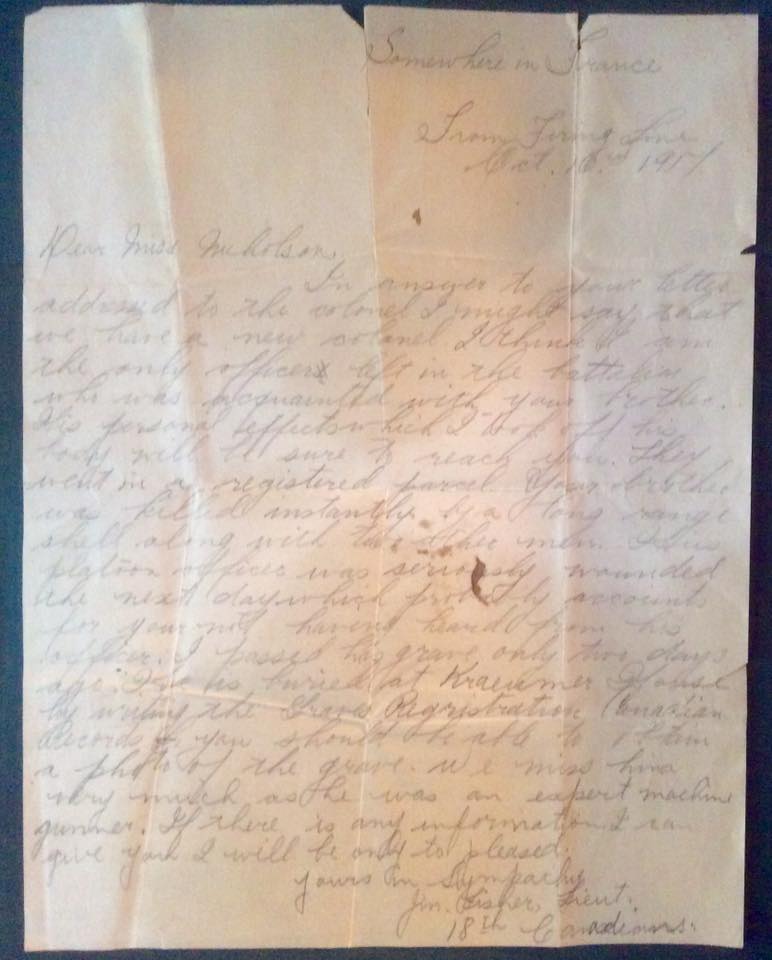 Somewhere in France
From Firing Line
Oct. 191
Dear Miss Nicholson,
In answer to your letter
addressed to the colonel I might say that
we have a new colonel I think I am
the only officer left in the battalion
who was acquainted with your brother.
His personal effects which I took off his
body will be sure to reach you. They
went in a registered parcel. Your brother
was killed instantly by a long range
shell along with two other men. His
platoon officer was seriously wounded
the next day which probably accounts
for your not having heard from his
officer. I passed his grave only two days
ago. He is buried at Kraeumer House
by writing the Graves Regristration Canadian
Records you should be able to obtain
a photo of the grave. We miss him
very much as he was an expert machine
gunner. If there is any information I can
give you I will be only to pleased.
yours in Sympathy
Fisher, Lieut.
18th Canadians.